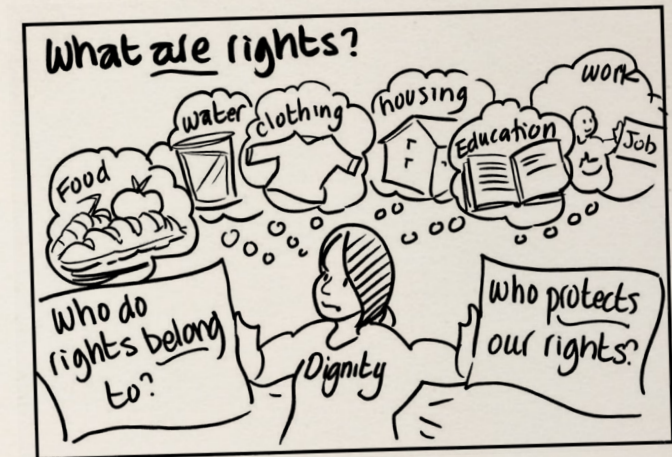 What are rights?
Food
water
clothing
housing
Education
work
Job
Who do
rights belong
to?
Dignity
who protects
our rights?